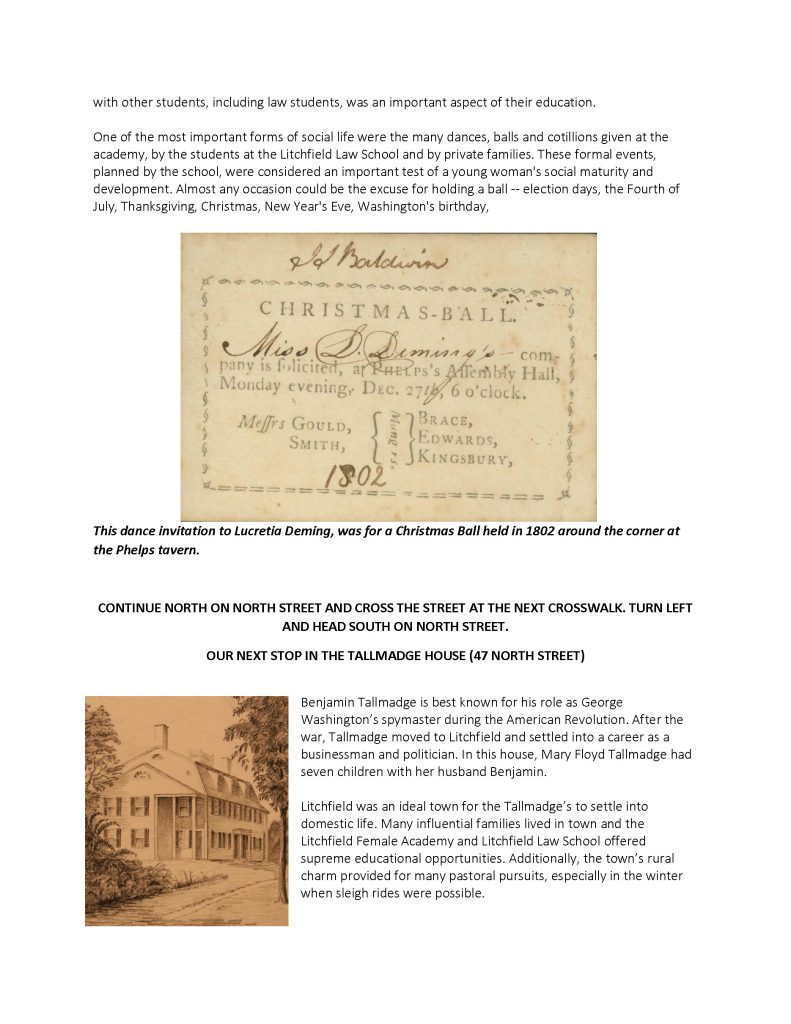 with other students, including law students, was an important aspect of their education.
One of the most important forms of social life were the many dances, balls and cotillions given at the
academy, by the students at the Litchfield Law School and by private families. These formal events,
planned by the school, were considered an important test of a young woman's social maturity and
development. Almost any occasion could be the excuse for holding a ball -- election days, the Fourth of
July, Thanksgiving, Christmas, New Year's Eve, Washington's birthday,
Baldwin
CHRISTMAS-BALL.
Miss D. Deming's com-
pany is ſolicited, at PHELPS's Aſſembly Hall,
Monday evening, DEC. 27th, 6 o'clock.
Meſſrs GOULD,
SMITH,
Mang'rs.
BRACE,
EDWARDS,
KINGSBURY,
1802
This dance invitation to Lucretia Deming, was for a Christmas Ball held in 1802 around the corner at
the Phelps tavern.
CONTINUE NORTH ON NORTH STREET AND CROSS THE STREET AT THE NEXT CROSSWALK. TURN LEFT
AND HEAD SOUTH ON NORTH STREET.
OUR NEXT STOP IN THE TALLMADGE HOUSE (47 NORTH STREET)
Benjamin Tallmadge is best known for his role as George
Washington’s spymaster during the American Revolution. After the
war, Tallmadge moved to Litchfield and settled into a career as a
businessman and politician. In this house, Mary Floyd Tallmadge had
seven children with her husband Benjamin.
Litchfield was an ideal town for the Tallmadge’s to settle into
domestic life. Many influential families lived in town and the
Litchfield Female Academy and Litchfield Law School offered
supreme educational opportunities. Additionally, the town’s rural
charm provided for many pastoral pursuits, especially in the winter
when sleigh rides were possible.